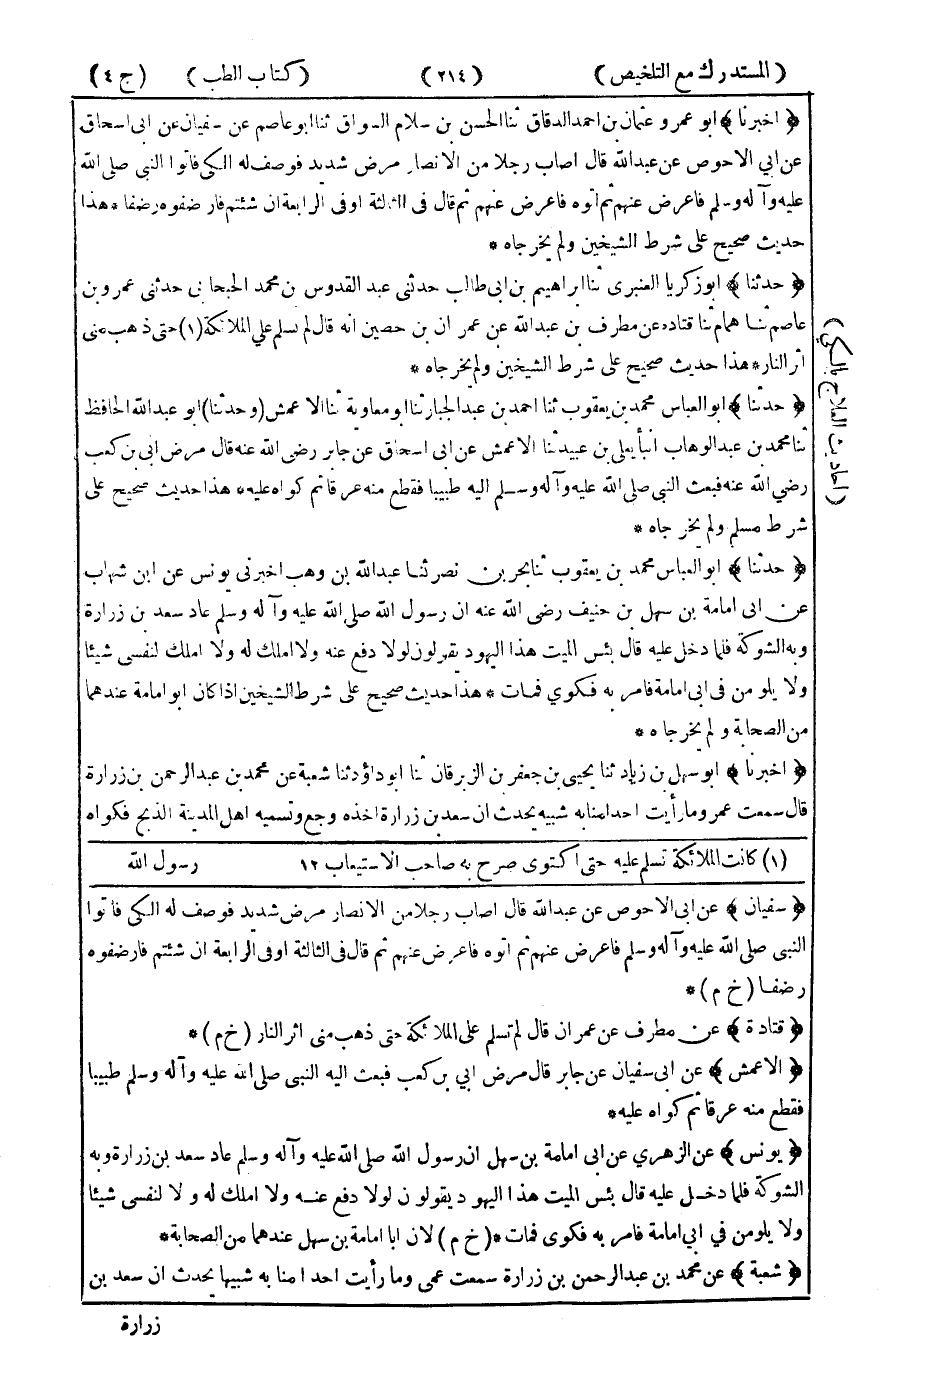 (المستدرك مع التلخيص) (٢١٤) (كتاب الطب) (ج ٤)
﴿ اخبرنا ﴾ ابو عمرو عثمان بن احمد الدقاق ثنا الحسن بن سلام السواق ثنا ابو عاصم عن سفيان عن ابى اسحاق
عن ابي الاحوص عن عبدالله قال اصاب رجلا من الانصار مرض شديد فوصف له الكى فاتوا النبي صلى الله
عليه وآله وسلم فاعرض عنهم ثم اتوه فاعرض عنهم ثم قال فى الثالثة اوفى الرابعة ان شئتم فارضفوه رضفا * هذا
حديث صحيح على شرط الشيخين ولم يخرجاه *
﴿ حدثنا ﴾ ابو زكريا العنبرى ثنا ابراهيم بن ابى طالب حدثنى عبد القدوس بن محمد الحبحابى حدثنى عمرو بن
عاصم ثنا همام ثنا قتاده عن مطرف بن عبدالله عن عمران بن حصين انه قال لم تسلم علي الملائكة (١) حتى ذهب منى
اثر النار * هذا حديث صحيح على شرط الشيخين ولم يخرجاه *
﴿ حدثنا ﴾ ابو العباس محمد بن يعقوب ثنا احمد بن عبد الجبار ثنا ابو معاوية ثنا الاعمش (وحدثنا) ابو عبدالله الحافظ
ثنا محمد بن عبد الوهاب انبأ يعلى بن عبيد ثنا الاعمش عن ابى اسحاق عن جابر رضى الله عنه قال مرض ابى بن كعب
رضي الله عنه فبعث النبى صلى الله عليه وآله وسلم اليه طبيبا فقطع منه عرقا ثم كواه عليه * هذا حديث صحيح على
شرط مسلم ولم يخرجاه *
﴿ حدثنا ﴾ ابو العباس محمد بن يعقوب ثنا بحر بن نصر ثنا عبدالله بن وهب اخبرنى يونس عن ابن شهاب
عن ابى امامة بن سهل بن حنيف رضى الله عنه ان رسول الله صلى الله عليه وآله وسلم عاد سعد بن زرارة
وبه الشوكة فلما دخل عليه قال بئس الميت هذا اليهود يقولون لولا دفع عنه ولا املك له ولا املك لنفسى شيئا
ولا يلومن فى ابى امامة فامر به فكوي فمات * هذا حديث صحيح على شرط الشيخين اذا كان ابو امامة عندهما
من الصحابة ولم يخرجاه *
﴿ اخبرنا ﴾ ابو سهل بن زياد ثنا يحيى بن جعفر بن الزبرقان ثنا ابو داؤد ثنا شعبة عن محمد بن عبد الرحمن بن زرارة
قال سمعت عمر وما رأيت احدا منا به شبيه يحدث ان سعد بن زرارة اخذه وجع وتسميه اهل المدينة الذبح فكواه
(احاديث العلاج بالكي)
(١) كانت الملائكة تسلم عليه حتى اكتوى صرح به صاحب الاستيعاب ١٢ رسول الله
﴿ سفيان ﴾ عن ابى الاحوص عن عبدالله قال اصاب رجلا من الانصار مرض شديد فوصف له الكى فاتوا
النبى صلى الله عليه وآله وسلم فاعرض عنهم ثم اتوه فاعرض عنهم ثم قال فى الثالثة اوفى الرابعة ان شئتم فارضفوه
رضفا (خ م) *
﴿ قتادة ﴾ عن مطرف عن عمران قال لم تسلم على الملائكة حتى ذهب منى اثر النار (خ م) *
﴿ الاعمش ﴾ عن ابى سفيان عن جابر قال مرض ابي بن كعب فبعث اليه النبى صلى الله عليه وآله وسلم طبيبا
فقطع منه عرقا ثم كواه عليه *
﴿ يونس ﴾ عن الزهري عن ابى امامة بن سهل ان رسول الله صلى الله عليه وآله وسلم عاد سعد بن زرارة وبه
الشوكة فلما دخل عليه قال بئس الميت هذا اليهود يقولون لولا دفع عنه ولا املك له ولا لنفسى شيئا
ولا يلومن في ابي امامة فامر به فكوى فمات * (خ م) لان ابا امامة بن سهل عندهما من الصحابة *
﴿ شعبة ﴾ عن محمد بن عبد الرحمن بن زرارة سمعت عمى وما رأيت احدا منا به شبيها يحدث ان سعد بن
زرارة